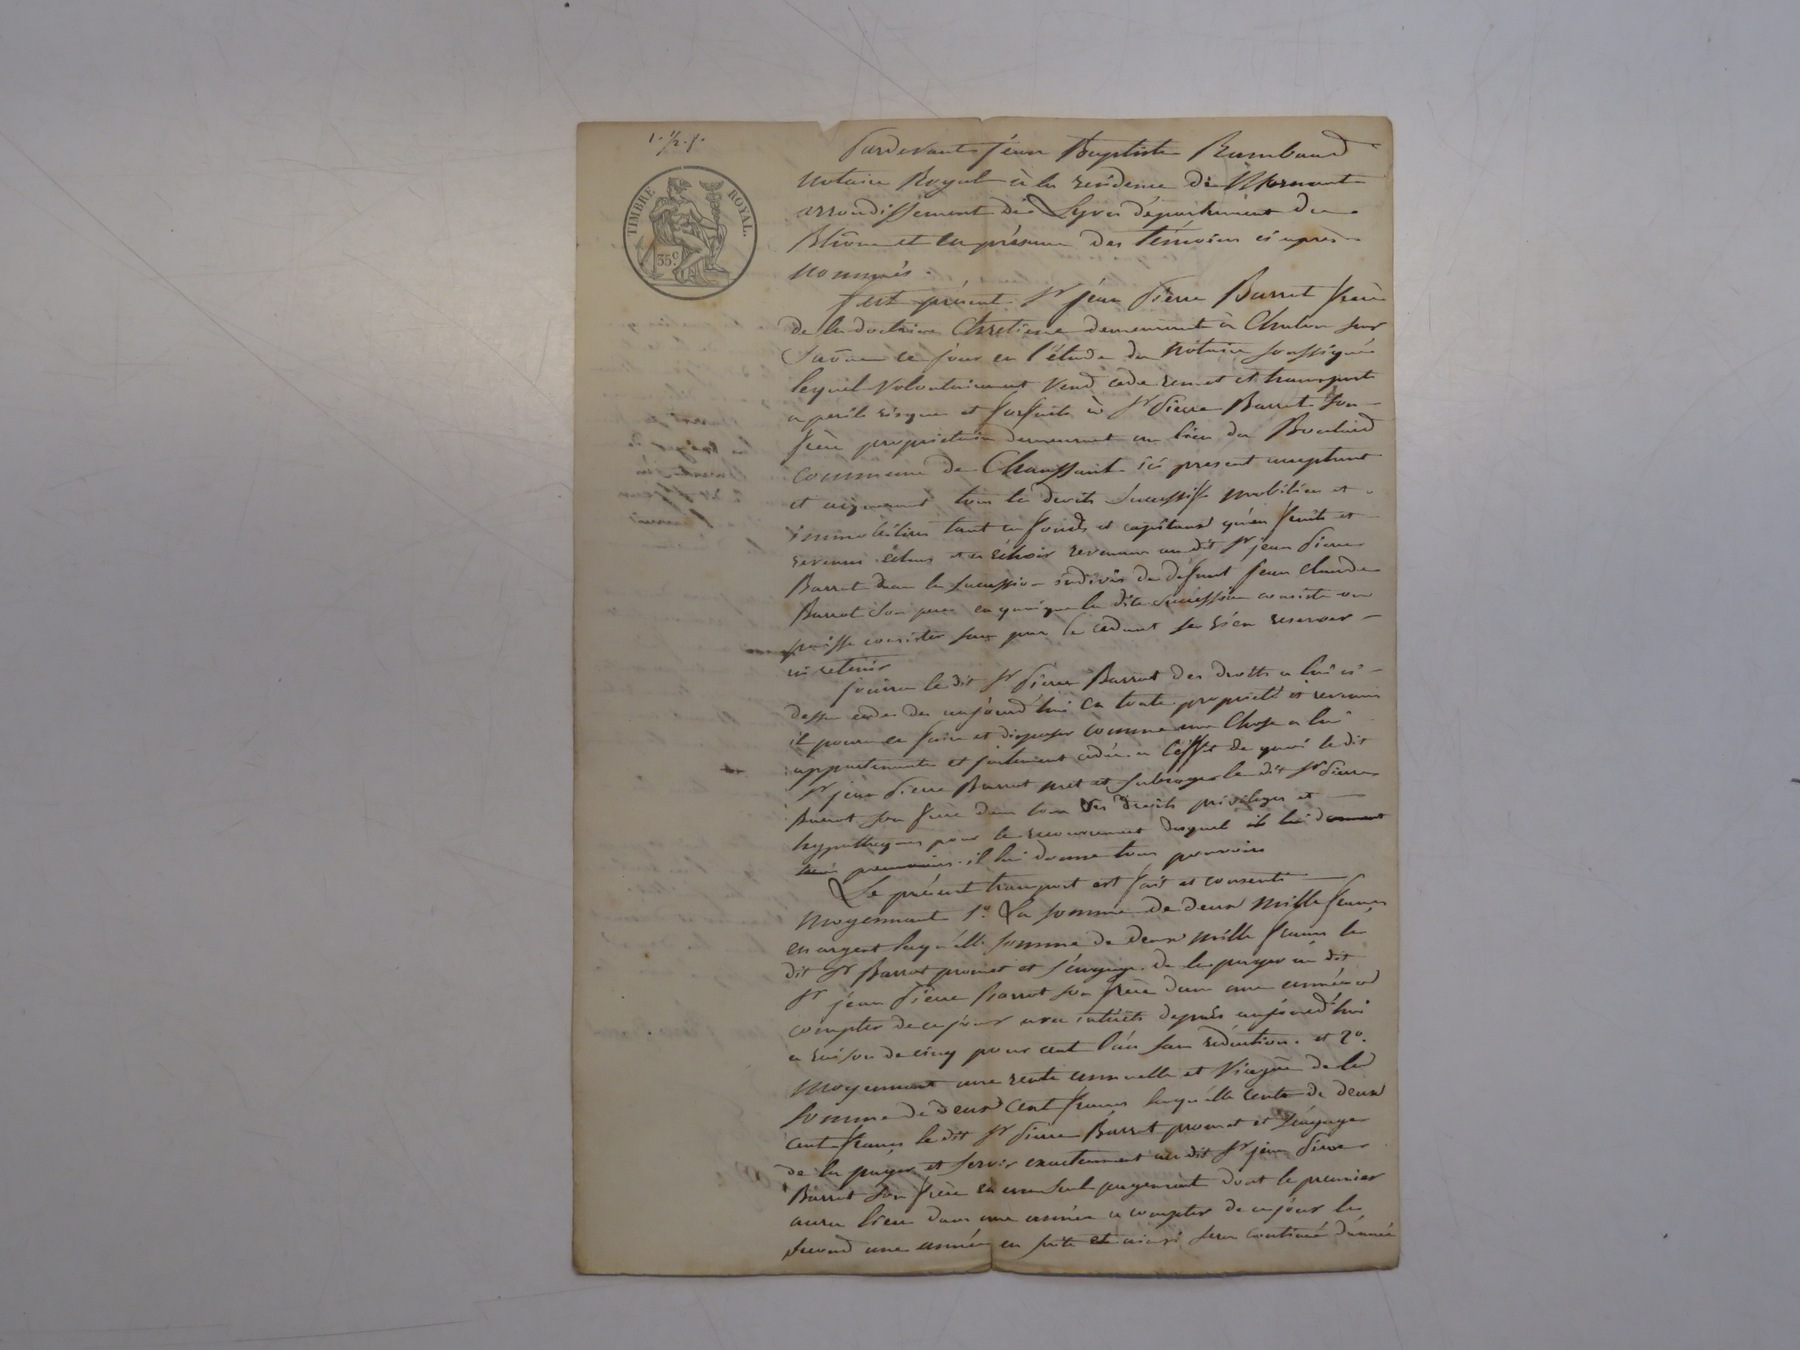 TIMBRE ROYAL.
35c.
Pardevant jéan Baptiste Rambaud
notaire Royal à la residence de Mornant
arrondissement de Lyon département du
Rhône et en présence des témoins ci après
nommés.
fut présent Sr jéan Pierre Barrot frère
de la doctrine Chretienne demeurant à Chalon sur
Saône ce jour en l'étude du notaire soussigné
lequel volontairement vend cede remet et transporte
a peril risque et forfait à Sr Pierre Barrot son
frère proprietaire demeurant au lieu du
commune de Chaussant ici present acceptant
et acquerant tous les droits successifs mobiliers et
immobiliers tant en fonds et capitaux qu'en fruits et
revenus échus et a échoir revenans au dit Sr jean Pierre
Barrot dans la succession indivise de defunt jean Claude
Barrot son pere en quoique la dite succession consiste ou
puisse consister sans par le cedant se rien reserver
ni retenir
jouira le dit Sr Pierre Barrot des droits a lui ci
dessus cedés des aujourd'hui en toute proprieté et revenus
il pourra en faire et disposer comme une chose a lui
appartenante et justement cedée a l'effet de quoi le dit
Sr jean Pierre Barrot met et subroge le dit Sr Pierre
Barrot son frère dans tous ses droits priviléges et
hypotheques pour le recouvrement desquels il lui donnent
il lui donne tous pouvoirs
Le présent transport est fait et consenti
moyennant 1° La somme de deux mille francs
en argent laquelle somme de deux mille francs le
dit Sr Barrot promet et s'engage de la payer au dit
Sr jéan Pierre Barrot son frère dans une année a
compter de ce jour avec intérêts depuis aujourd'hui
a raison de cinq pour cent l'an sans réduction. et 2°.
moyennant une rente annuelle et viagère de la
somme de deux cent francs laquelle rente de deux
cent francs le dit Sr Pierre Barrot promet et s'engage
de la payer et servir exactement au dit Sr jean Pierre
Barrot son frère en un seul payement dont le premier
aura lieu dans une année a compter de ce jour le
second une année en suite et ainsi sera continué d'année